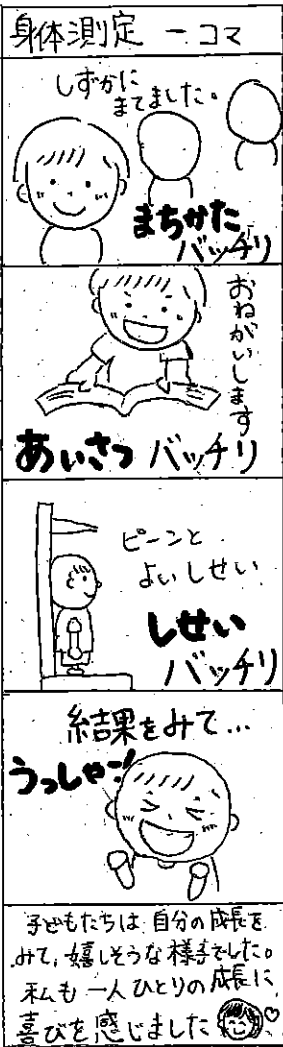 身体測定 一コマ
しずかに
まてました。
まちかた
バッチリ
おねがいします
あいさつ バッチリ
ピーンと
よいしせい
しせい
バッチリ
結果をみて…
うっしゃー!
子どもたちは自分の成長を
みて、嬉しそうな様子でした。
私も一人ひとりの成長に
喜びを感じました